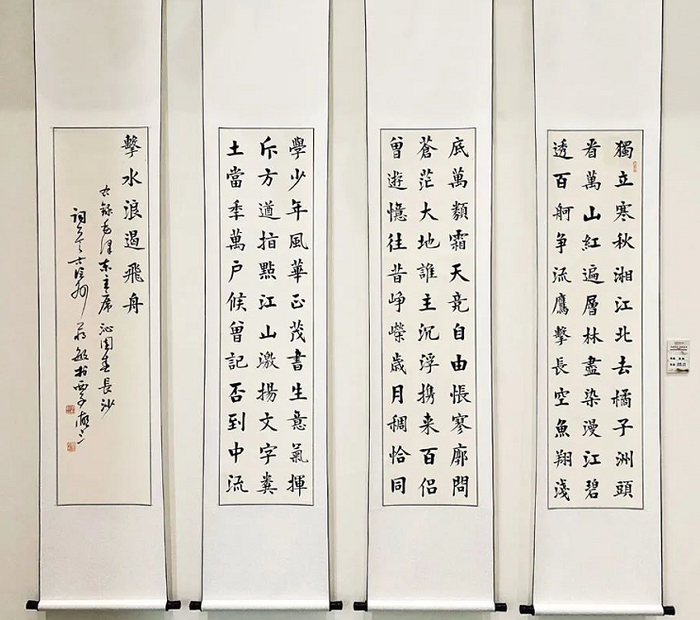 獨立寒秋湘江北去橘子洲頭
看萬山紅遍層林盡染漫江碧
透百舸争流鷹擊長空魚翔淺
底萬類霜天竞自由悵寥廓問
蒼茫大地誰主沉浮携来百侣
曾遊憶往昔峥嶸歲月稠恰同
學少年風華正茂書生意氣揮
斥方遒指點江山激揚文字糞
土當秊萬户候曾記否到中流
擊水浪遏飛舟
右錄毛澤东主席沁園春長沙
詞